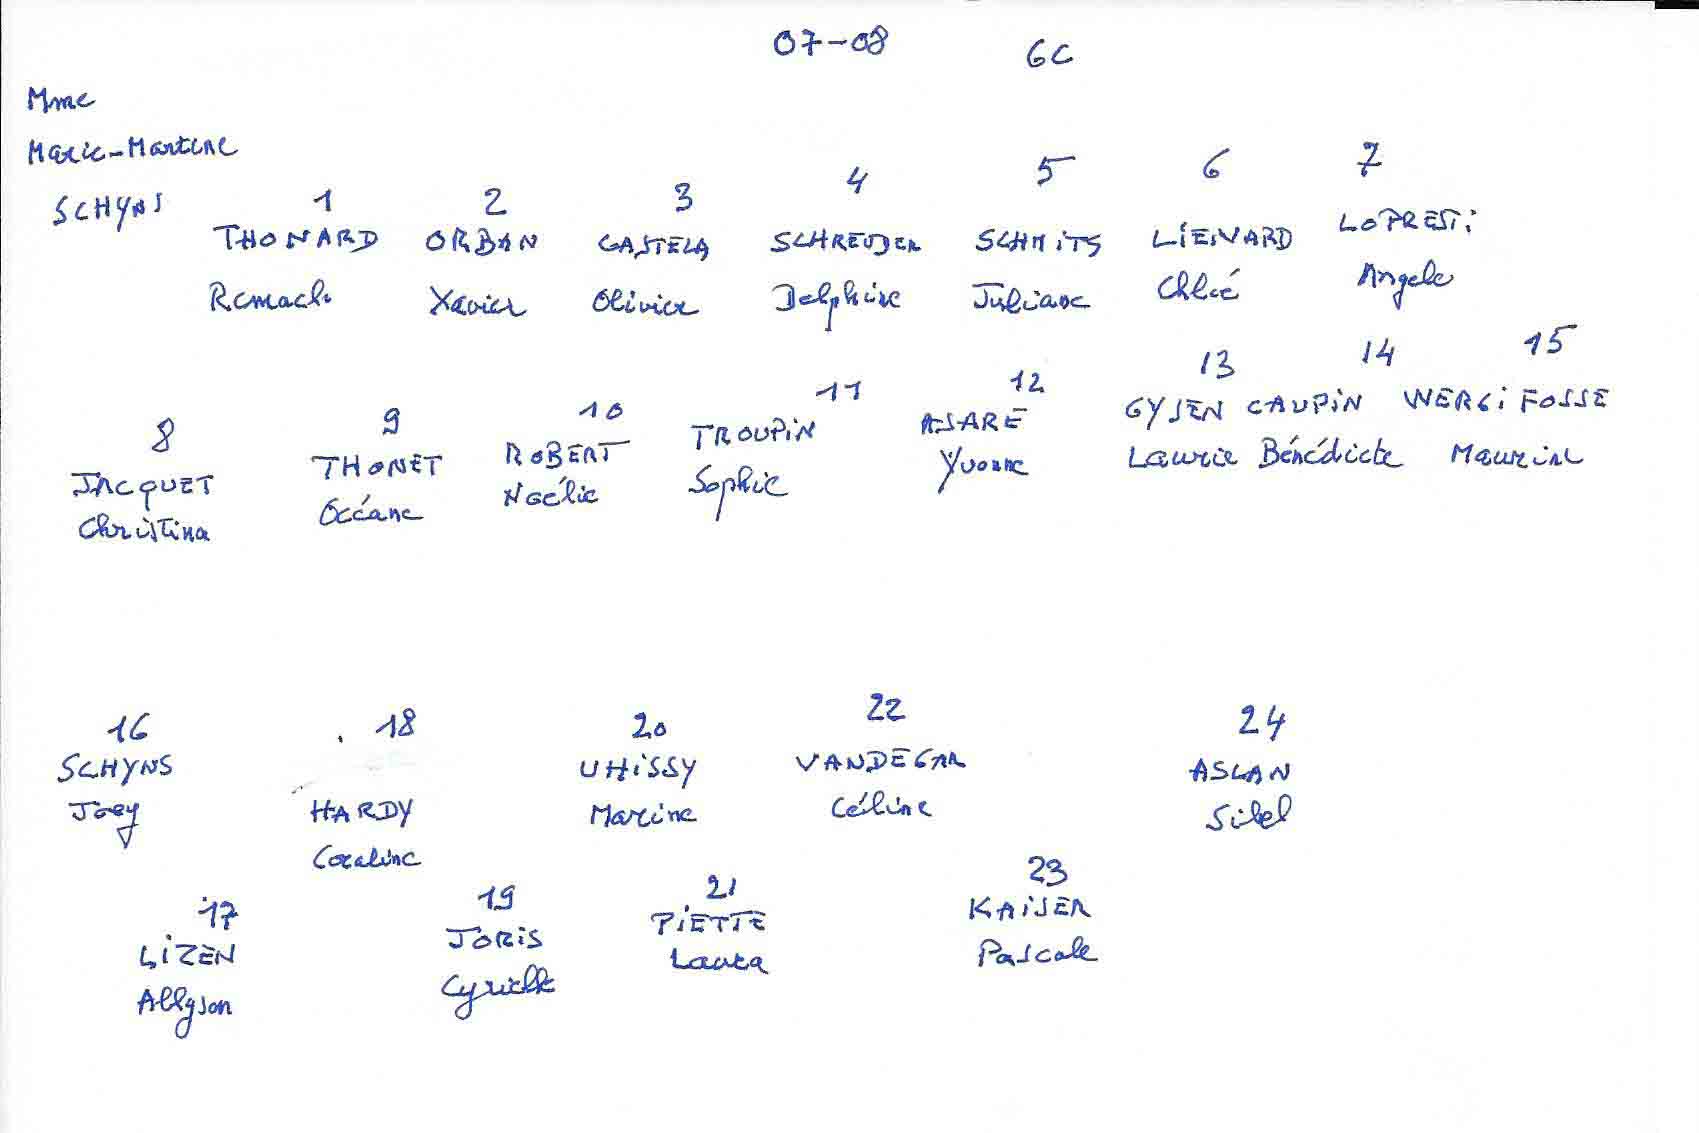 07-08 6C
Mme
Marie-Martine
SCHYNS
1 2 3 4 5 6 7
THONARD ORBAN CASTELA SCHREUDER SCHMITS LIENVARD LOPRESTi
Romach Xavier Olivier Delphine Juliane Chloé Angele
8 9 10 11 12 13 14 15
JACQUET THONET ROBERT TROUPIN ASARE GYSEN CAUPIN WERGiFOSSE
Christina Océane Noélie Sophie Yvonne Laurie Bénédicte Maurine
16 18 20 22 24
SCHYNS HARDY UHiSSY VANDEGAR ASLAN
Joey Coraline Marine Céline Sibel
17 19 21 23
LIZEN JORIS PIETTE KAISER
Allyson Cyrielle Laura Pascale